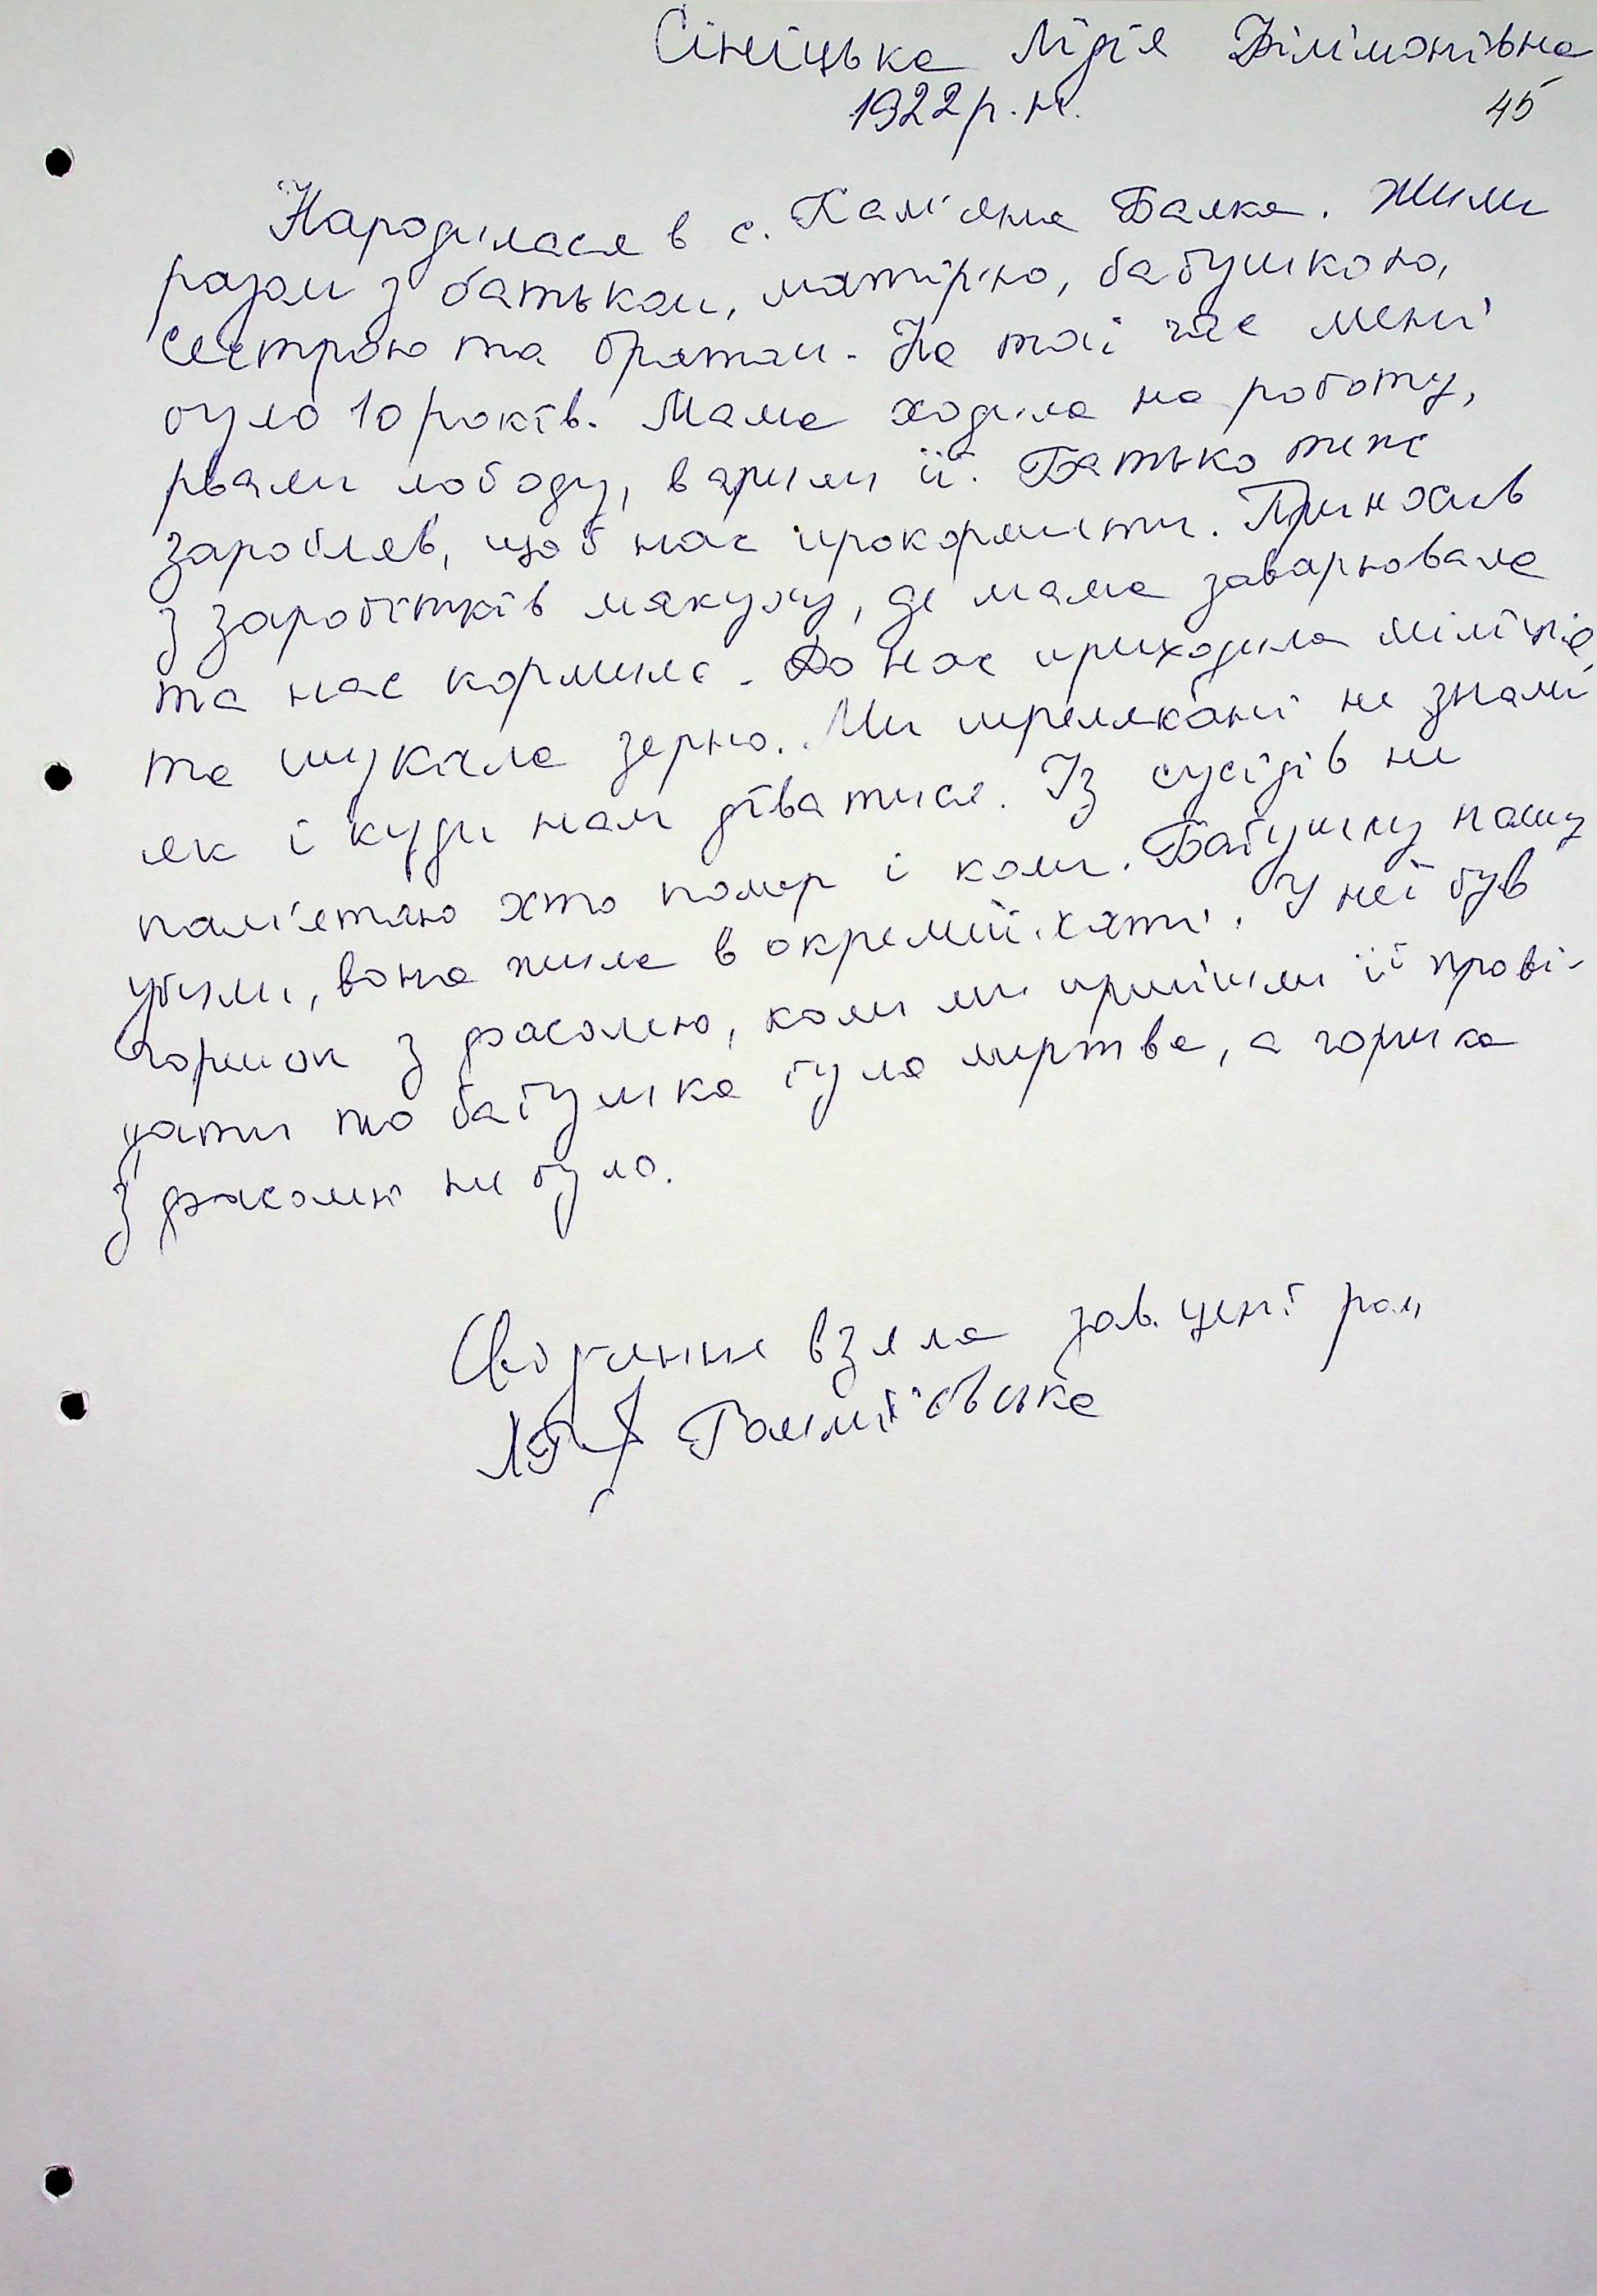 Сініцька Лідія Філімонівна
1922 р.н. 45
Народилася в с. Кам'яна Балка. Жили
разом з батьком, матір'ю, бабушкою,
сестрою та братом. На той час мені
було 10 років. Мама ходила на роботу,
рвали лободу, варили її. Батько теж
заробляв, щоб нас прокормити. Приносив
з заробітків макуху, де мама заварювала
та нас кормила. До нас приходила міліція,
та шукала зерно. Ми прелякані не знали
як і куди нам діватися. Із сусідів не
пам'ятаю хто помер і коли. Бабушку нашу
убили, вона жила в окремій хаті. У неї був
горшок з фасолею, коли ми прийшли її прові-
дати то бабушка була мертва, а горшка
з фасолею не було.
Свідчення взяла зав.